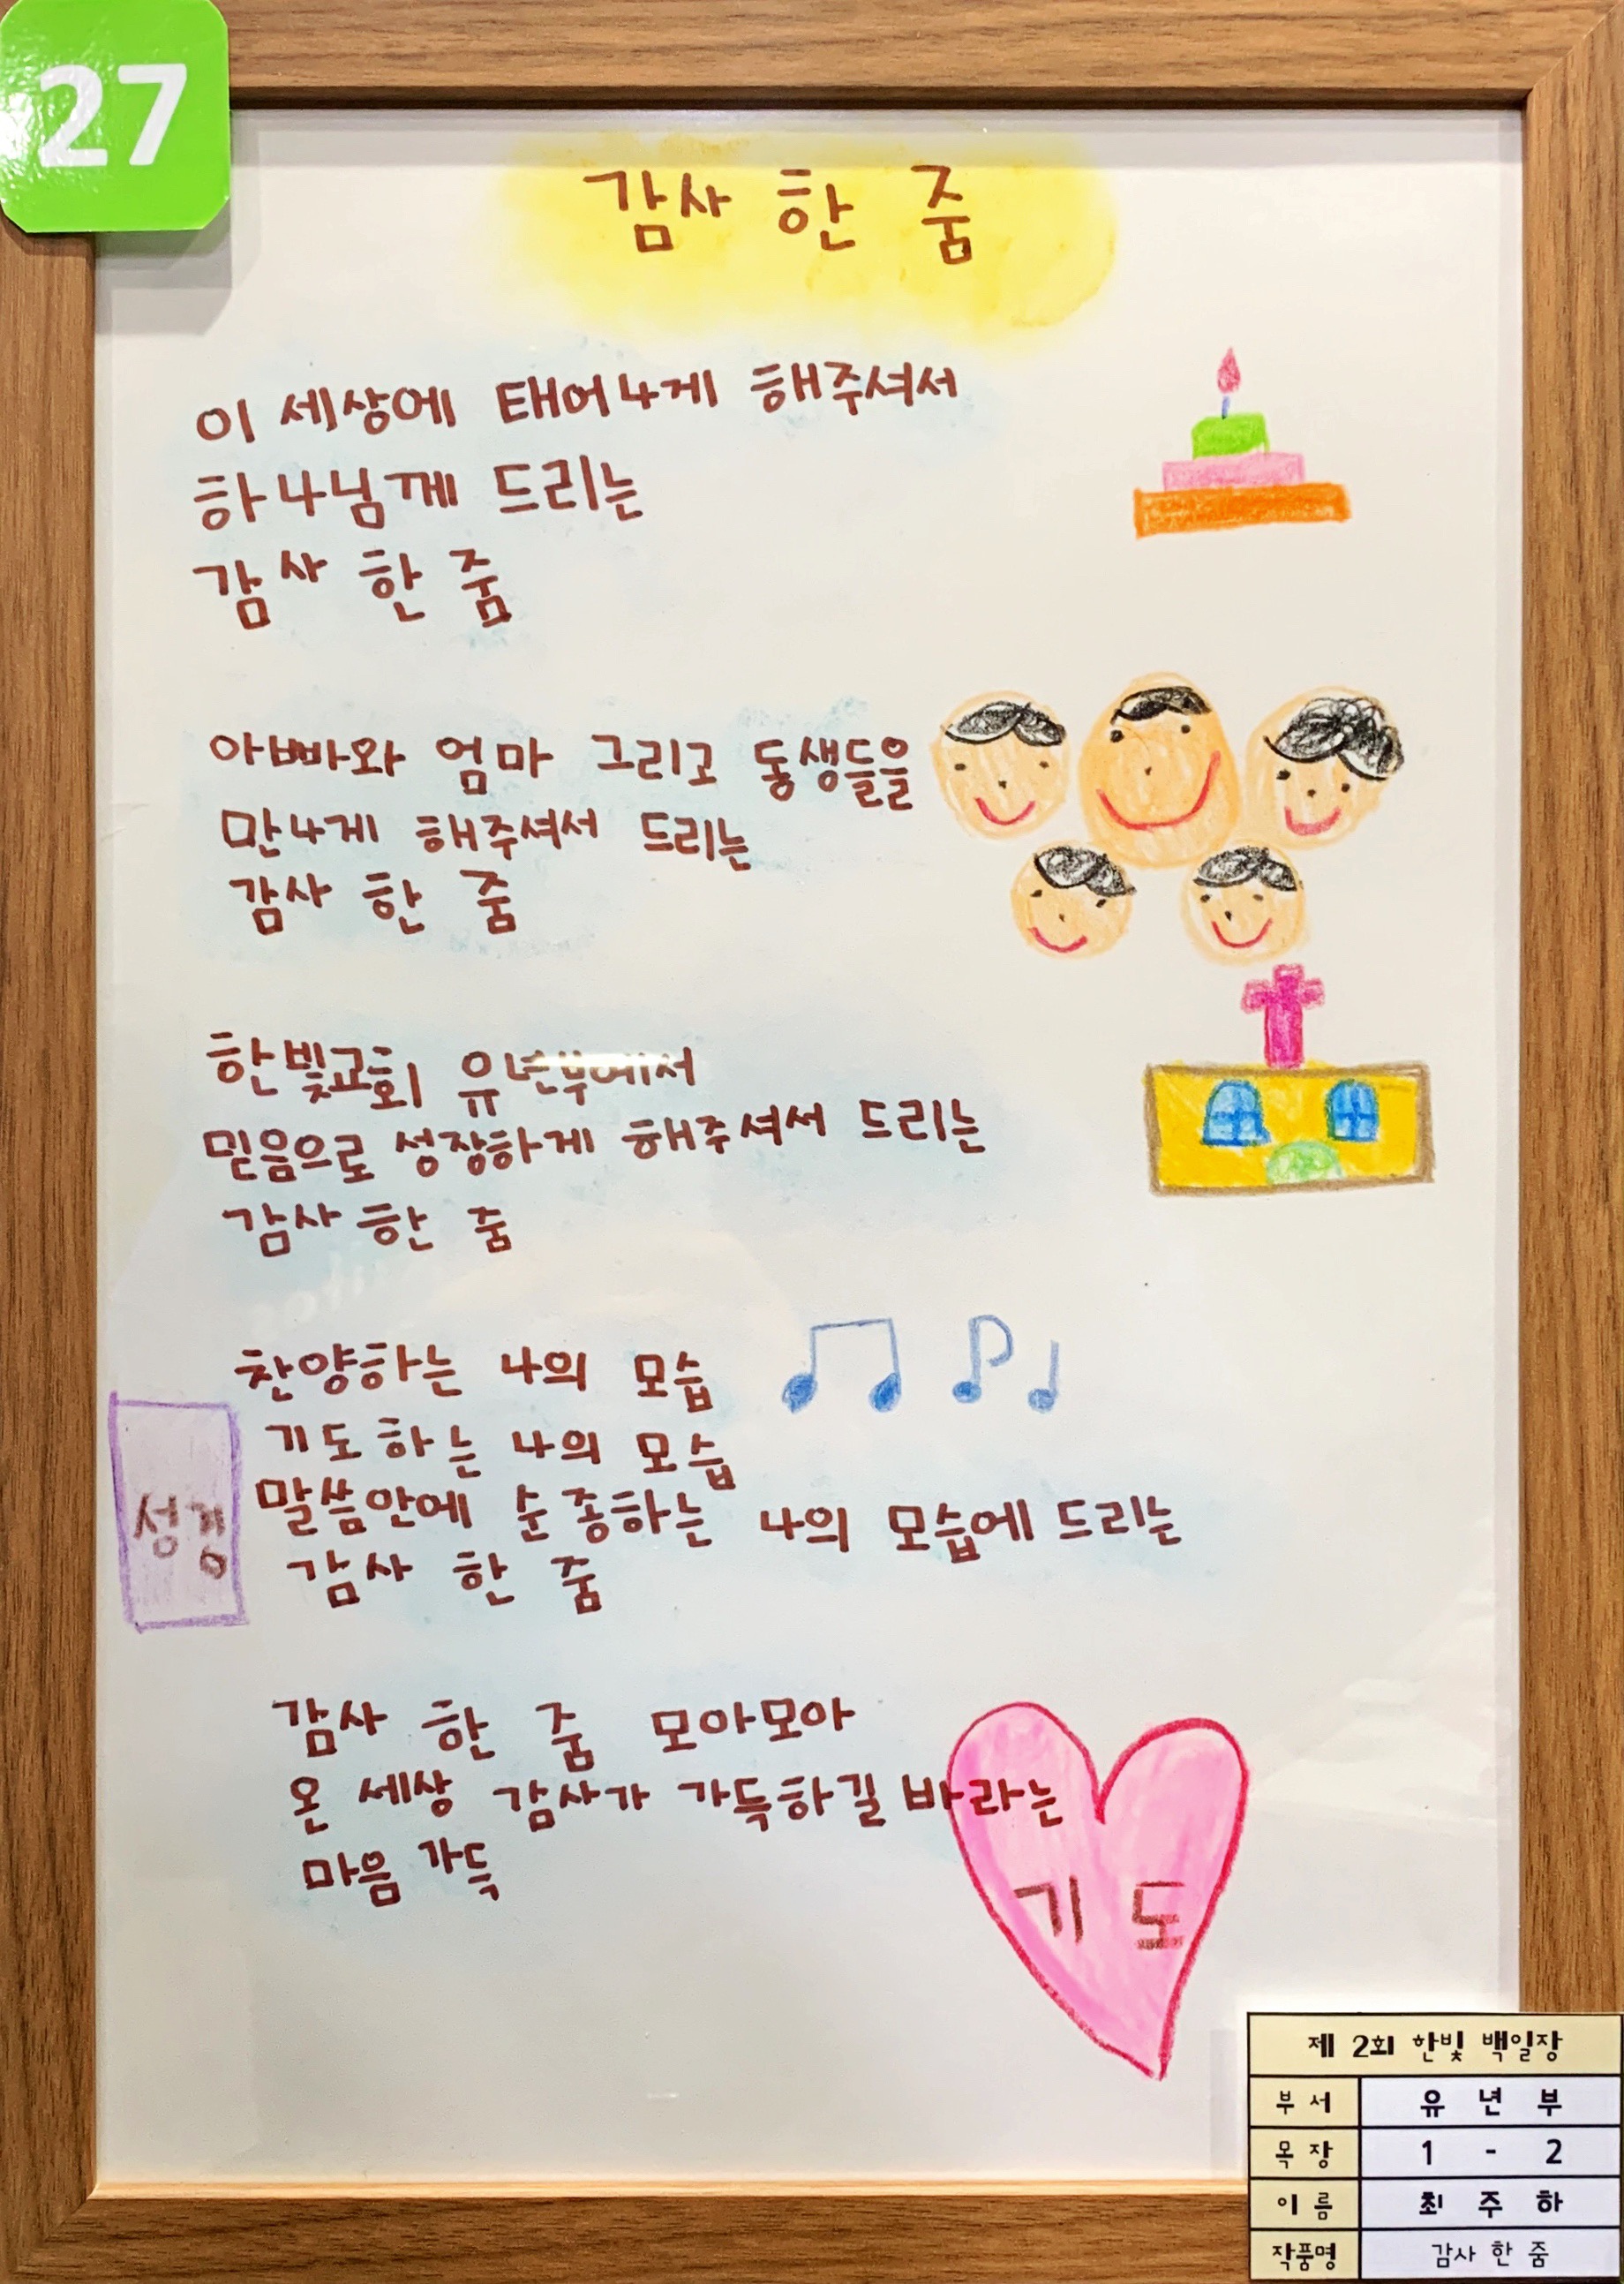 27
감사 한 줌
이 세상에 태어나게 해주셔서
하나님께 드리는
감사 한 줌
아빠와 엄마 그리고 동생들을
만나게 해주셔서 드리는
감사 한 줌
한빛교회 유년부에서
믿음으로 성장하게 해주셔서 드리는
감사 한 줌
찬양하는 나의 모습
기도하는 나의 모습
말씀안에 순종하는 나의 모습에 드리는
감사 한 줌
성경
감사 한 줌 모아모아
온 세상 감사가 가득하길 바라는
마음 가득
기도
제 2회 한빛 백일장
부서 유년부
목장 1 - 2
이름 최주하
작품명 감사 한 줌